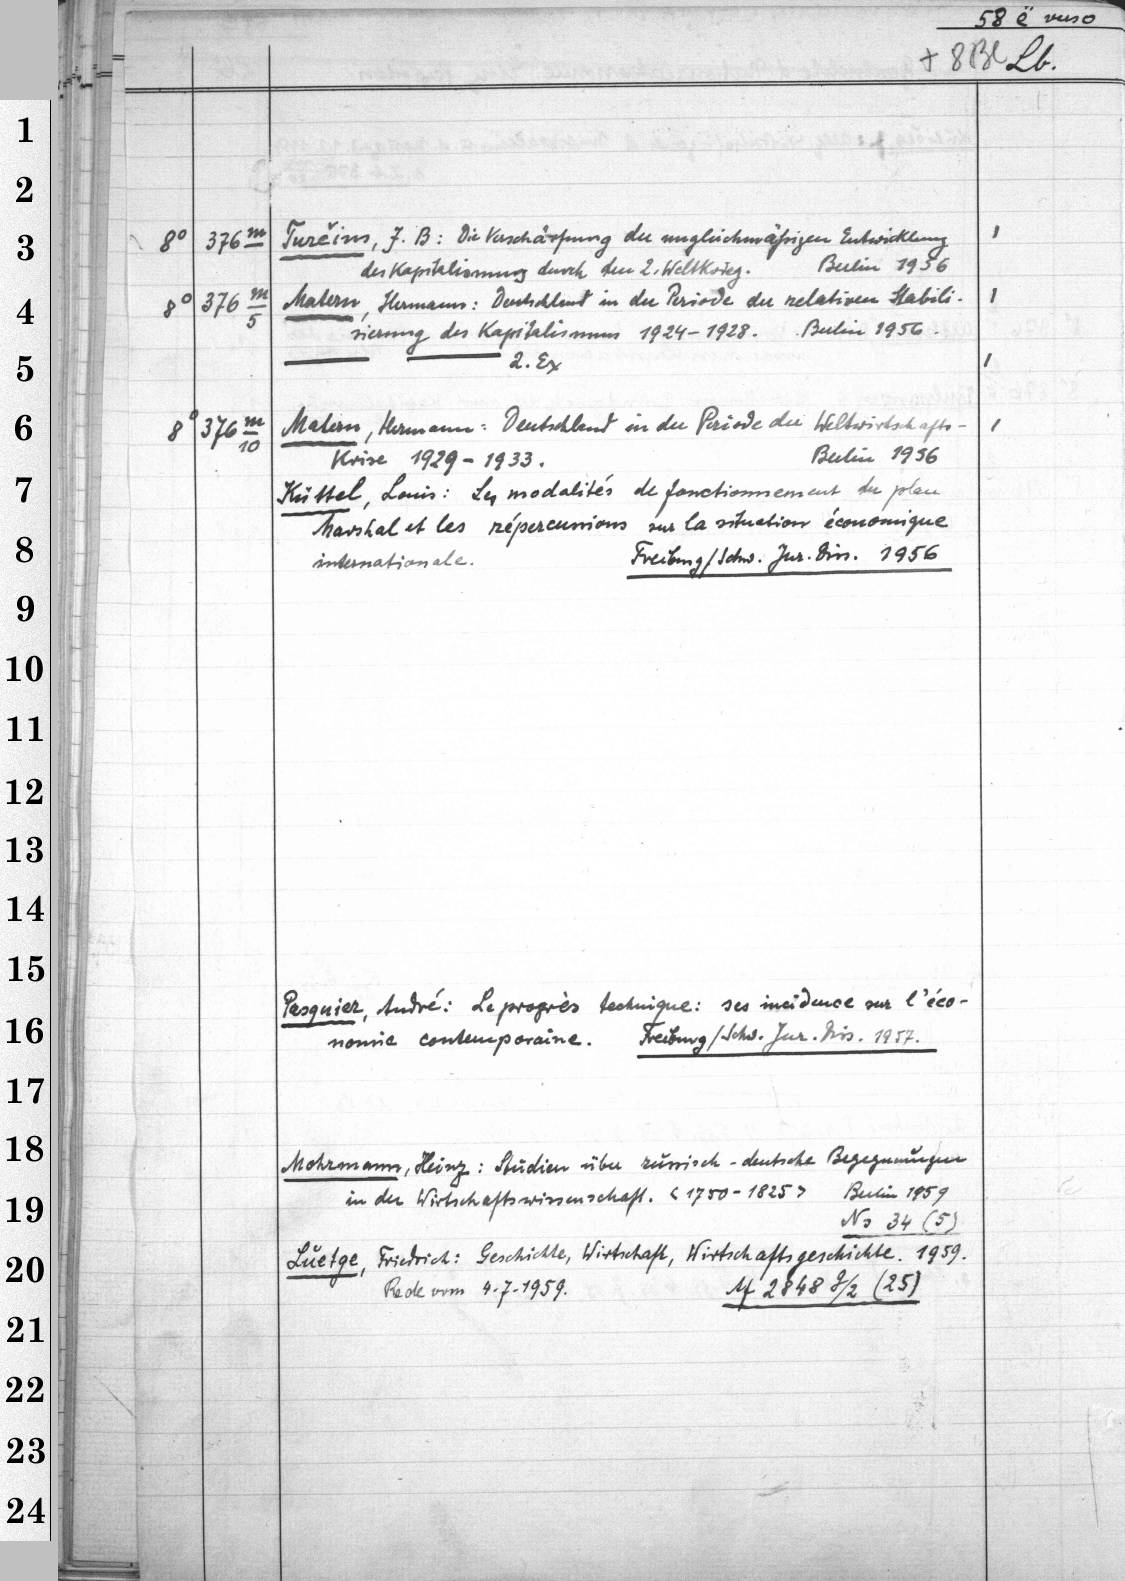 58 ë verso
+ 8Bl Lb.
1
2
3 8° 376 m Turčins, J. B: Die Verschärfung der ungleichmäßigen Entwicklung 1
des Kapitalismus durch den 2. Weltkrieg. Berlin 1956
4 8° 376 m/5 Matern, Hermann: Deutschland in der Periode der relativen Stabili- 1
sierung des Kapitalismus 1924-1928. Berlin 1956.
5 2. Ex 1
6 8° 376 m/10 Matern, Hermann: Deutschland in der Periode der Weltwirtschafts- 1
Krise 1929-1933. Berlin 1956
7 Küttel, Louis: Les modalités de fonctionnement du plan
Marshal et les répercussions sur la situation économique
8 internationale. Freiburg/Schw. Jur. Diss. 1956
9
10
11
12
13
14
15
Pasquier, André: Le progrès technique: ses incidence sur l'éco-
16 nomie contemporaine. Freiburg/Schw. Jur. Diss. 1957.
17
18 Mohrmann, Heinz: Studien über russisch-deutsche Begegnungen
19 in der Wirtschaftswissenschaft. <1750-1825> Berlin 1959
No 34 (5)
20 Luetge, Friedrich: Geschichte, Wirtschaft, Wirtschaftsgeschichte. 1959.
Rede vom 4.7.1959. 2848 8/2 (25)
21
22
23
24